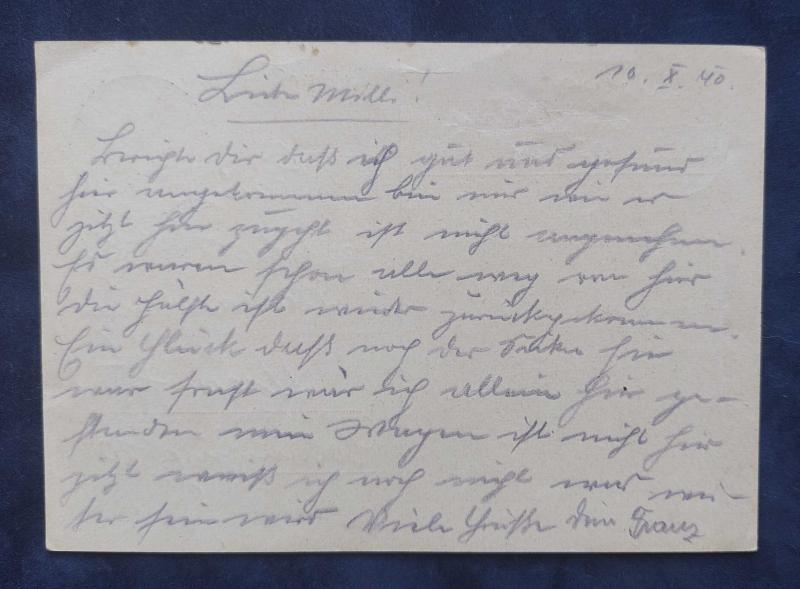 10. X. 40.
Liebe Milli!
Berichte Dir daß ich gut und gesund
hier angekommen bin nur wie er
jetzt hier zugeht ist nicht angenehm.
Es waren schon alle weg von hier
die Hälfte ist wieder zurückgekommen.
Ein Glück daß noch der hier
war sonst wär ich allein hier ge-
standen mein Wagen ist nicht hier
jetzt weiß ich noch nicht was wei-
ter sein wird Viele Grüße dein Franz